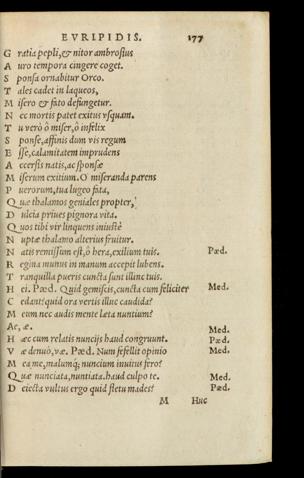 EVRIPIDIS. 177
G ratia pepli, & nitor ambrosius
A uro tempora cingere coget.
S ponsa ornabitur Orco.
T ales cadet in laqueos,
M isero & fato defungetur.
N ec mortis patet exitus vsquam.
T u verò ô miser, ô infelix
S ponse, affinis dum vis regum
E sse, calamitatem imprudens
A ccersis natis, ac sponsæ
M iserum exitium. O miseranda parens
P uerorum, tua lugeo fata,
Q uæ thalamos geniales propter,
D ulcia priues pignora vita.
Q uos tibi vir linquens iniustè
N uptæ thalamo alterius fruitur.
N atis remissum est, ô hera, exilium tuis. Pæd.
R egina munus in manum accepit lubens.
T ranquilla pueris cuncta sunt illinc tuis.
H ei. Pæd. Quid gemiscis, cuncta cum feliciter Med.
C edant? quid ora vertis illuc candida?
M eum nec audis mente læta nuntium?
Ae, æ. Med.
H æc cum relatis nuncijs haud congruunt. Pæd.
V æ denuò, væ. Pæd. Num fefellit opinio Med.
M ea me, malumq́; nuncium inuitus fero?
Q uæ nunciata, nuntiata. haud culpo te. Med.
D eiecta vultus ergo quid fletu mades? Pæd.
M Huc